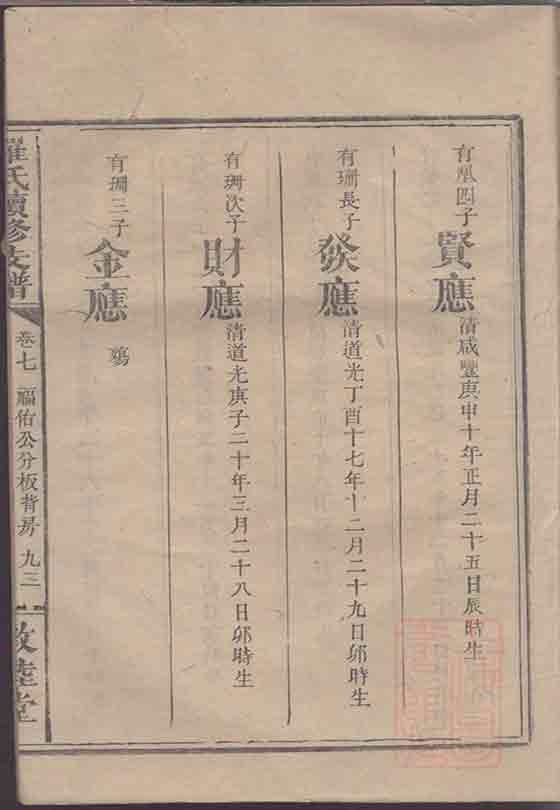 有壐四子
賢應
清咸豐庚申十年正月二十五日辰時生
有珊長子
發應
清道光丁酉十七年十二月二十九日卯時生
有珊次子
財應
清道光庚子二十年三月二十八日卯時生
有珊三子
金應
殤
羅氏續修支譜
卷七
福佑公分板背房
九三
敦睦堂